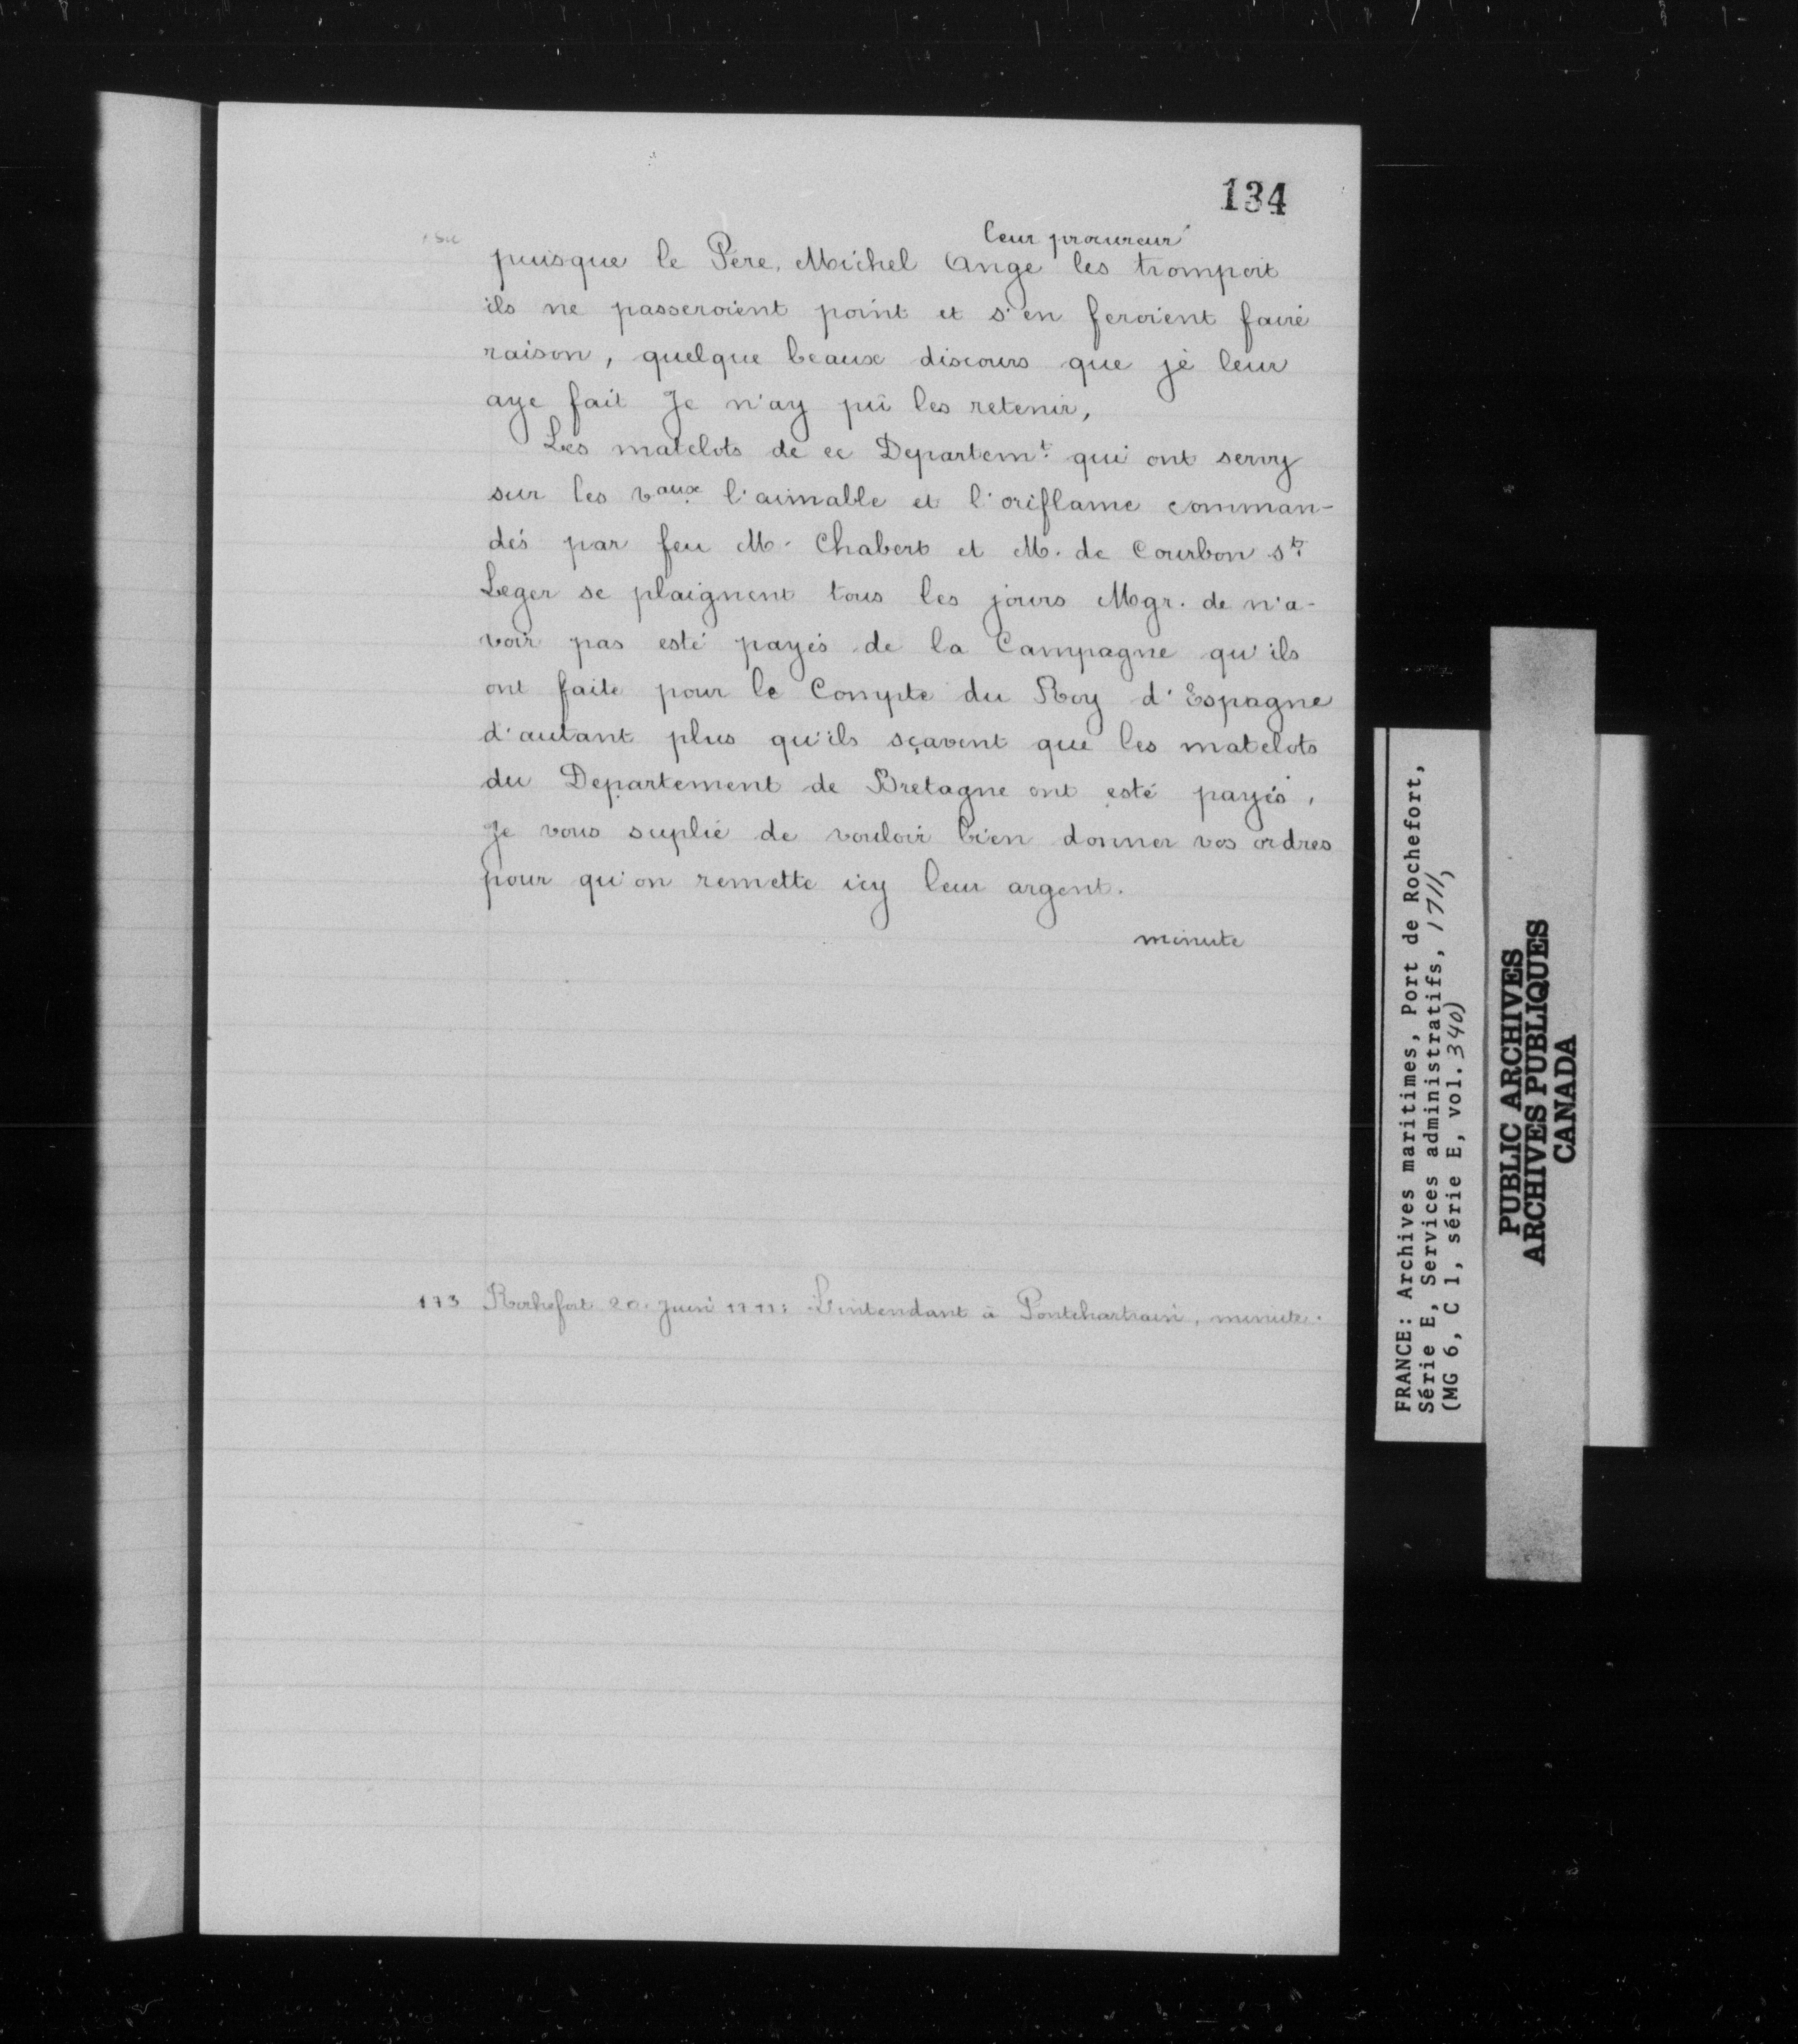 134
leur procureur
puisque le Père, Michel Ange les trompoit
ils ne passeroient point et s'en feroient faire
raison, quelque beaux discours que je leur
aye fait Je n'ay pû les retenir,
Les matelots de ce Departemt. qui ont servy
sur les vaux l'aimable et l'oriflame comman-
dés par feu M. Chabert et M. de Courbon st.
Leger se plaignent tous les jours Mgr. de n'a-
voir pas esté payés de la Campagne qu'ils
ont faite pour le Compte du Roy d'Espagne
d'autant plus qu'ils sçavent que les matelots
du Departement de Bretagne ont esté payés,
Je vous suplie de vouloir bien donner vos ordres
pour qu'on remette icy leur argent.
minute
173 Rochefort 20. Juin 1711: L'intendant à Pontchartrain, minute.
FRANCE: Archives maritimes, Port de Rochefort,
Série E, Services administratifs, 1711,
(MG 6, C 1, série E, vol. 340)
PUBLIC ARCHIVES
ARCHIVES PUBLIQUES
CANADA